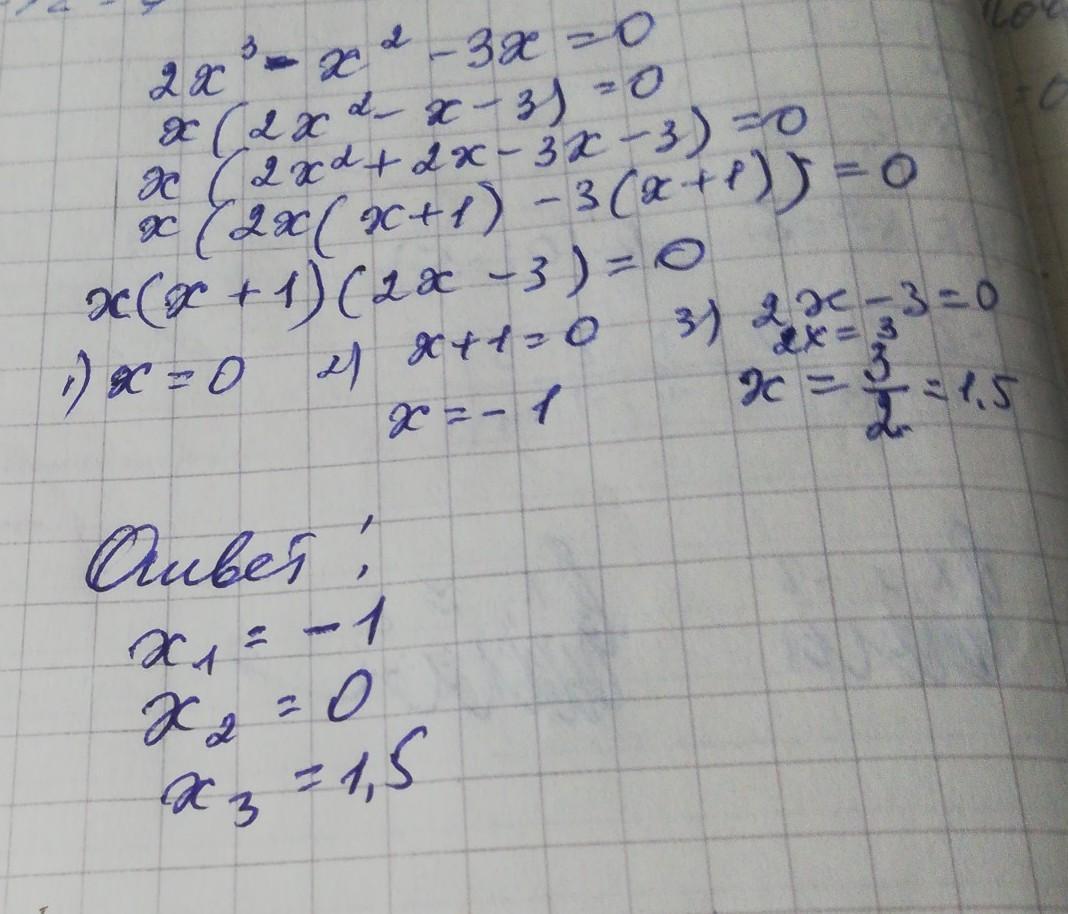 2x³ - x² - 3x = 0
x(2x² - x - 3) = 0
x(2x² + 2x - 3x - 3) = 0
x(2x(x+1) - 3(x+1)) = 0
x(x+1)(2x-3) = 0
1) x = 0 2) x+1 = 0 3) 2x - 3 = 0
2x = 3
x = -1 x = 3/2 = 1,5
Ответ:
x₁ = -1
x₂ = 0
x₃ = 1,5